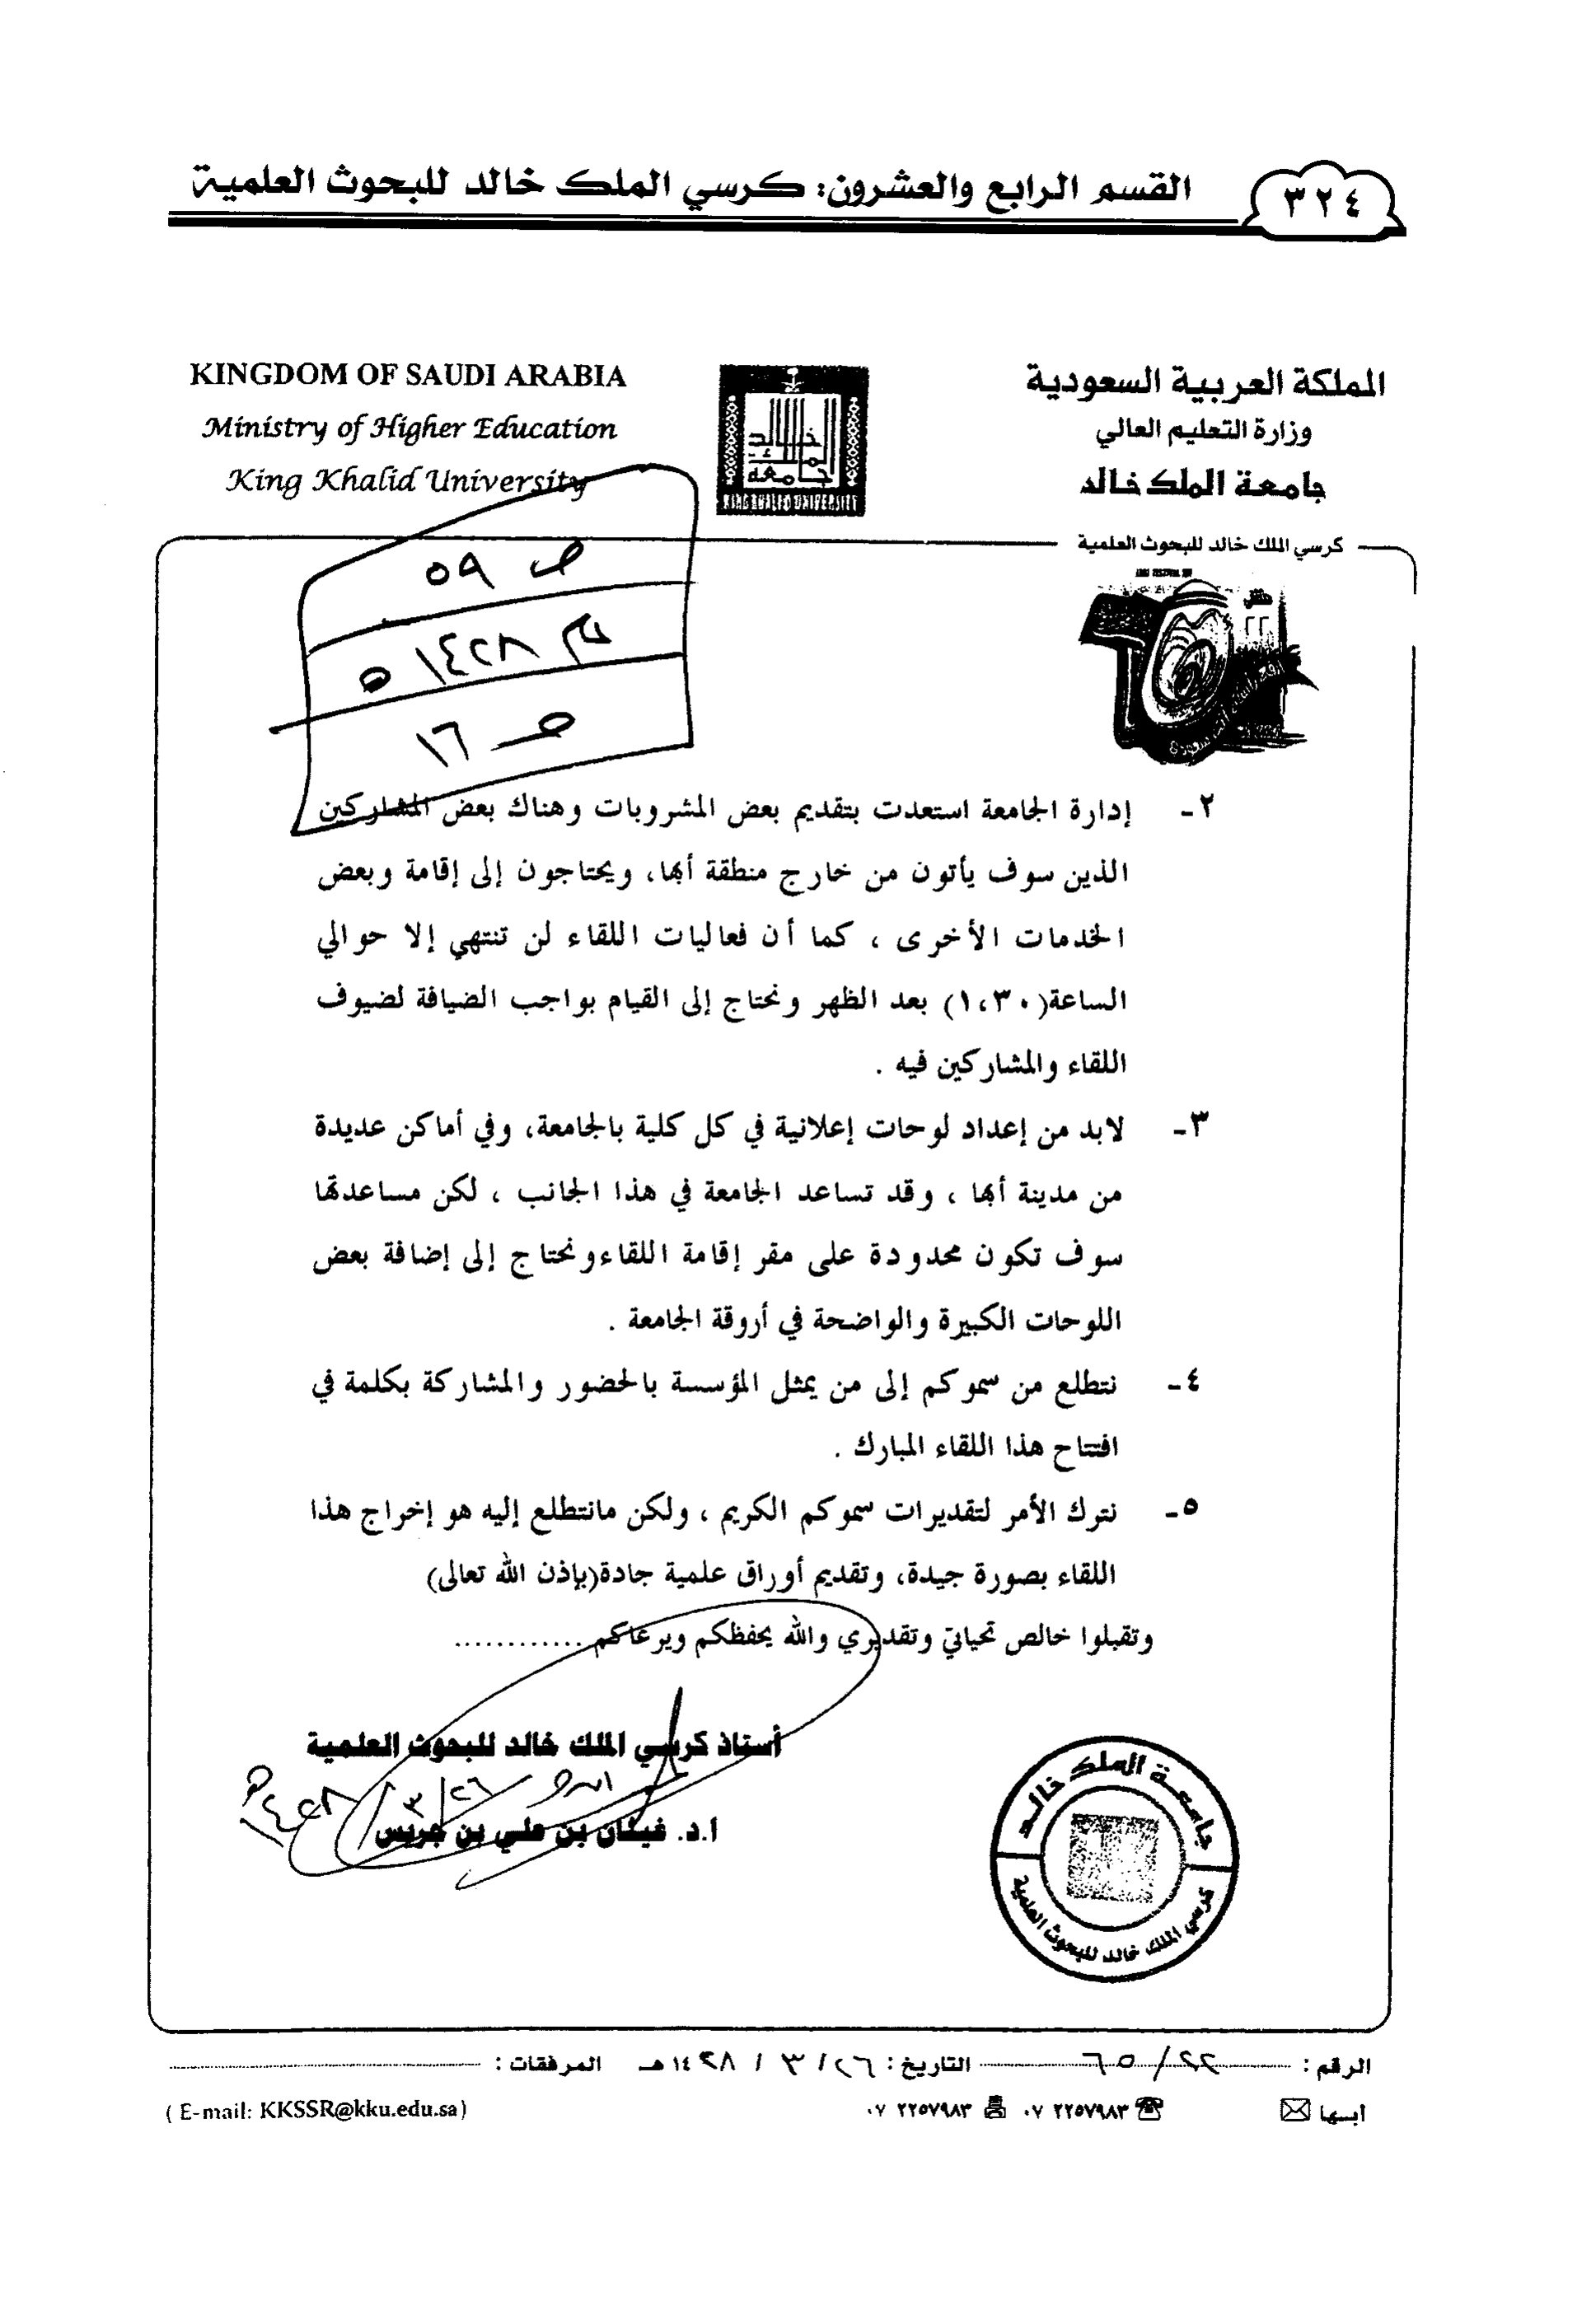 ٣٢٤
القسم الرابع والعشرون: كرسي الملك خالد للبحوث العلمية
المملكة العربية السعودية
وزارة التعليم العالي
جامعة الملك خالد
KINGDOM OF SAUDI ARABIA
Ministry of Higher Education
King Khalid University
جامعة الملك خالد
KING KHALED UNIVERSITY
كرسي الملك خالد للبحوث العلمية
ص ٥٩
١٤٢٨ ه
ص ١٦
٢- إدارة الجامعة استعدت بتقديم بعض المشروبات وهناك بعض المشاركين
الذين سوف يأتون من خارج منطقة أبها، ويحتاجون إلى إقامة وبعض
الخدمات الأخرى ، كما أن فعاليات اللقاء لن تنتهي إلا حوالي
الساعة(١،٣٠) بعد الظهر ونحتاج إلى القيام بواجب الضيافة لضيوف
اللقاء والمشاركين فيه .
٣- لابد من إعداد لوحات إعلانية في كل كلية بالجامعة، وفي أماكن عديدة
من مدينة أبها ، وقد تساعد الجامعة في هذا الجانب ، لكن مساعدتها
سوف تكون محدودة على مقر إقامة اللقاءونحتاج إلى إضافة بعض
اللوحات الكبيرة والواضحة في أروقة الجامعة .
٤- نتطلع من سموكم إلى من يمثل المؤسسة بالحضور والمشاركة بكلمة في
افتتاح هذا اللقاء المبارك .
٥- نترك الأمر لتقديرات سموكم الكريم ، ولكن مانتطلع إليه هو إخراج هذا
اللقاء بصورة جيدة، وتقديم أوراق علمية جادة(بإذن الله تعالى)
وتقبلوا خالص تحياتي وتقديري والله يحفظكم ويرعاكم ............
أستاذ كرسي الملك خالد للبحوث العلمية
٢٦/٣/١٤٢٨ه
أ.د. غيثان بن علي بن جريس
جامعة الملك خالد
كرسي الملك خالد للبحوث العلمية
الرقم : ٦٥/٢٢ التاريخ : ٢٦ / ٣ / ١٤٢٨ هـ المرفقات :
أبها ٢٢٥٧٩٨٣ ٠٧ ٢٢٥٧٩٨٣ ٠٧ ( E-mail: KKSSR@kku.edu.sa)